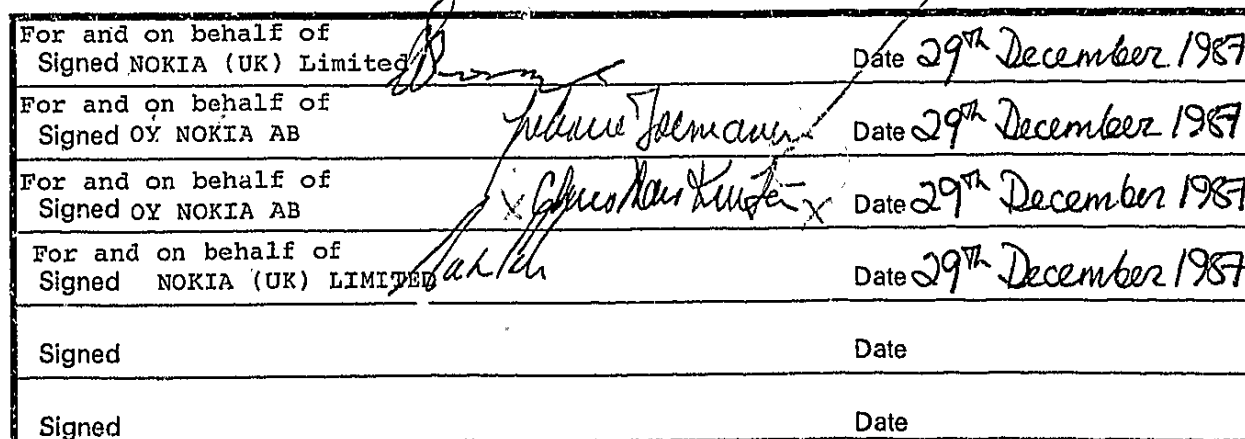 For and on behalf of
Signed NOKIA (UK) Limited Date 29th December 1987
For and on behalf of
Signed OY NOKIA AB Date 29th December 1987
For and on behalf of
Signed OY NOKIA AB x x Date 29th December 1987
For and on behalf of
Signed NOKIA (UK) LIMITED Date 29th December 1987
Signed Date
Signed Date